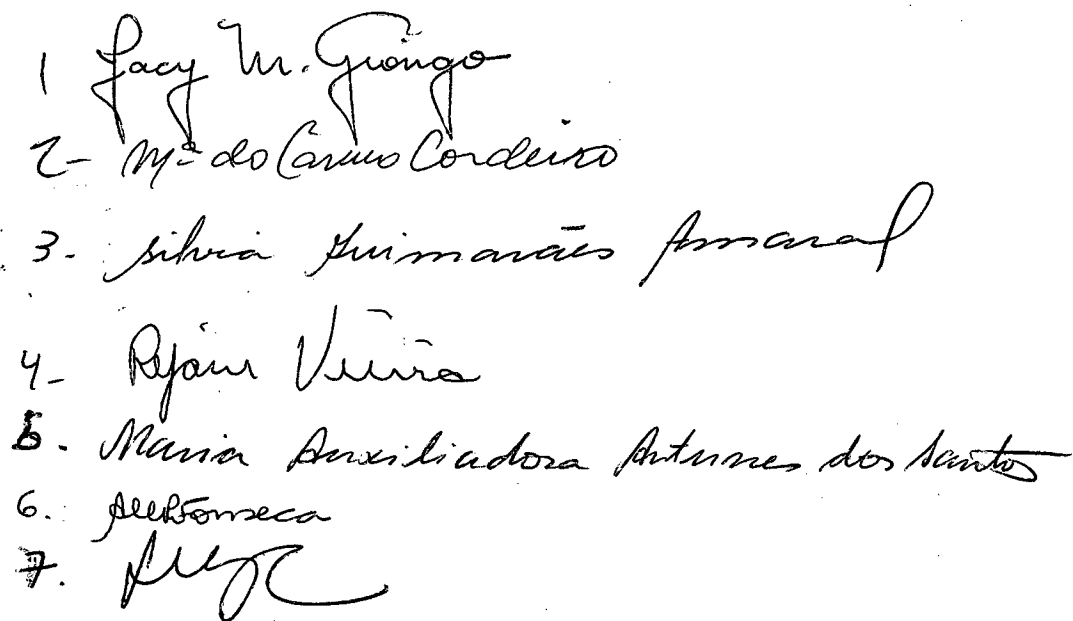 1 Jacy M. Giongo
2- Mª do Carmo Cordeiro
3. Silvia Guimarães Amaral
4- Rejane Vieira
5. Maria Auxiliadora Antunes dos Santos
6.
7.